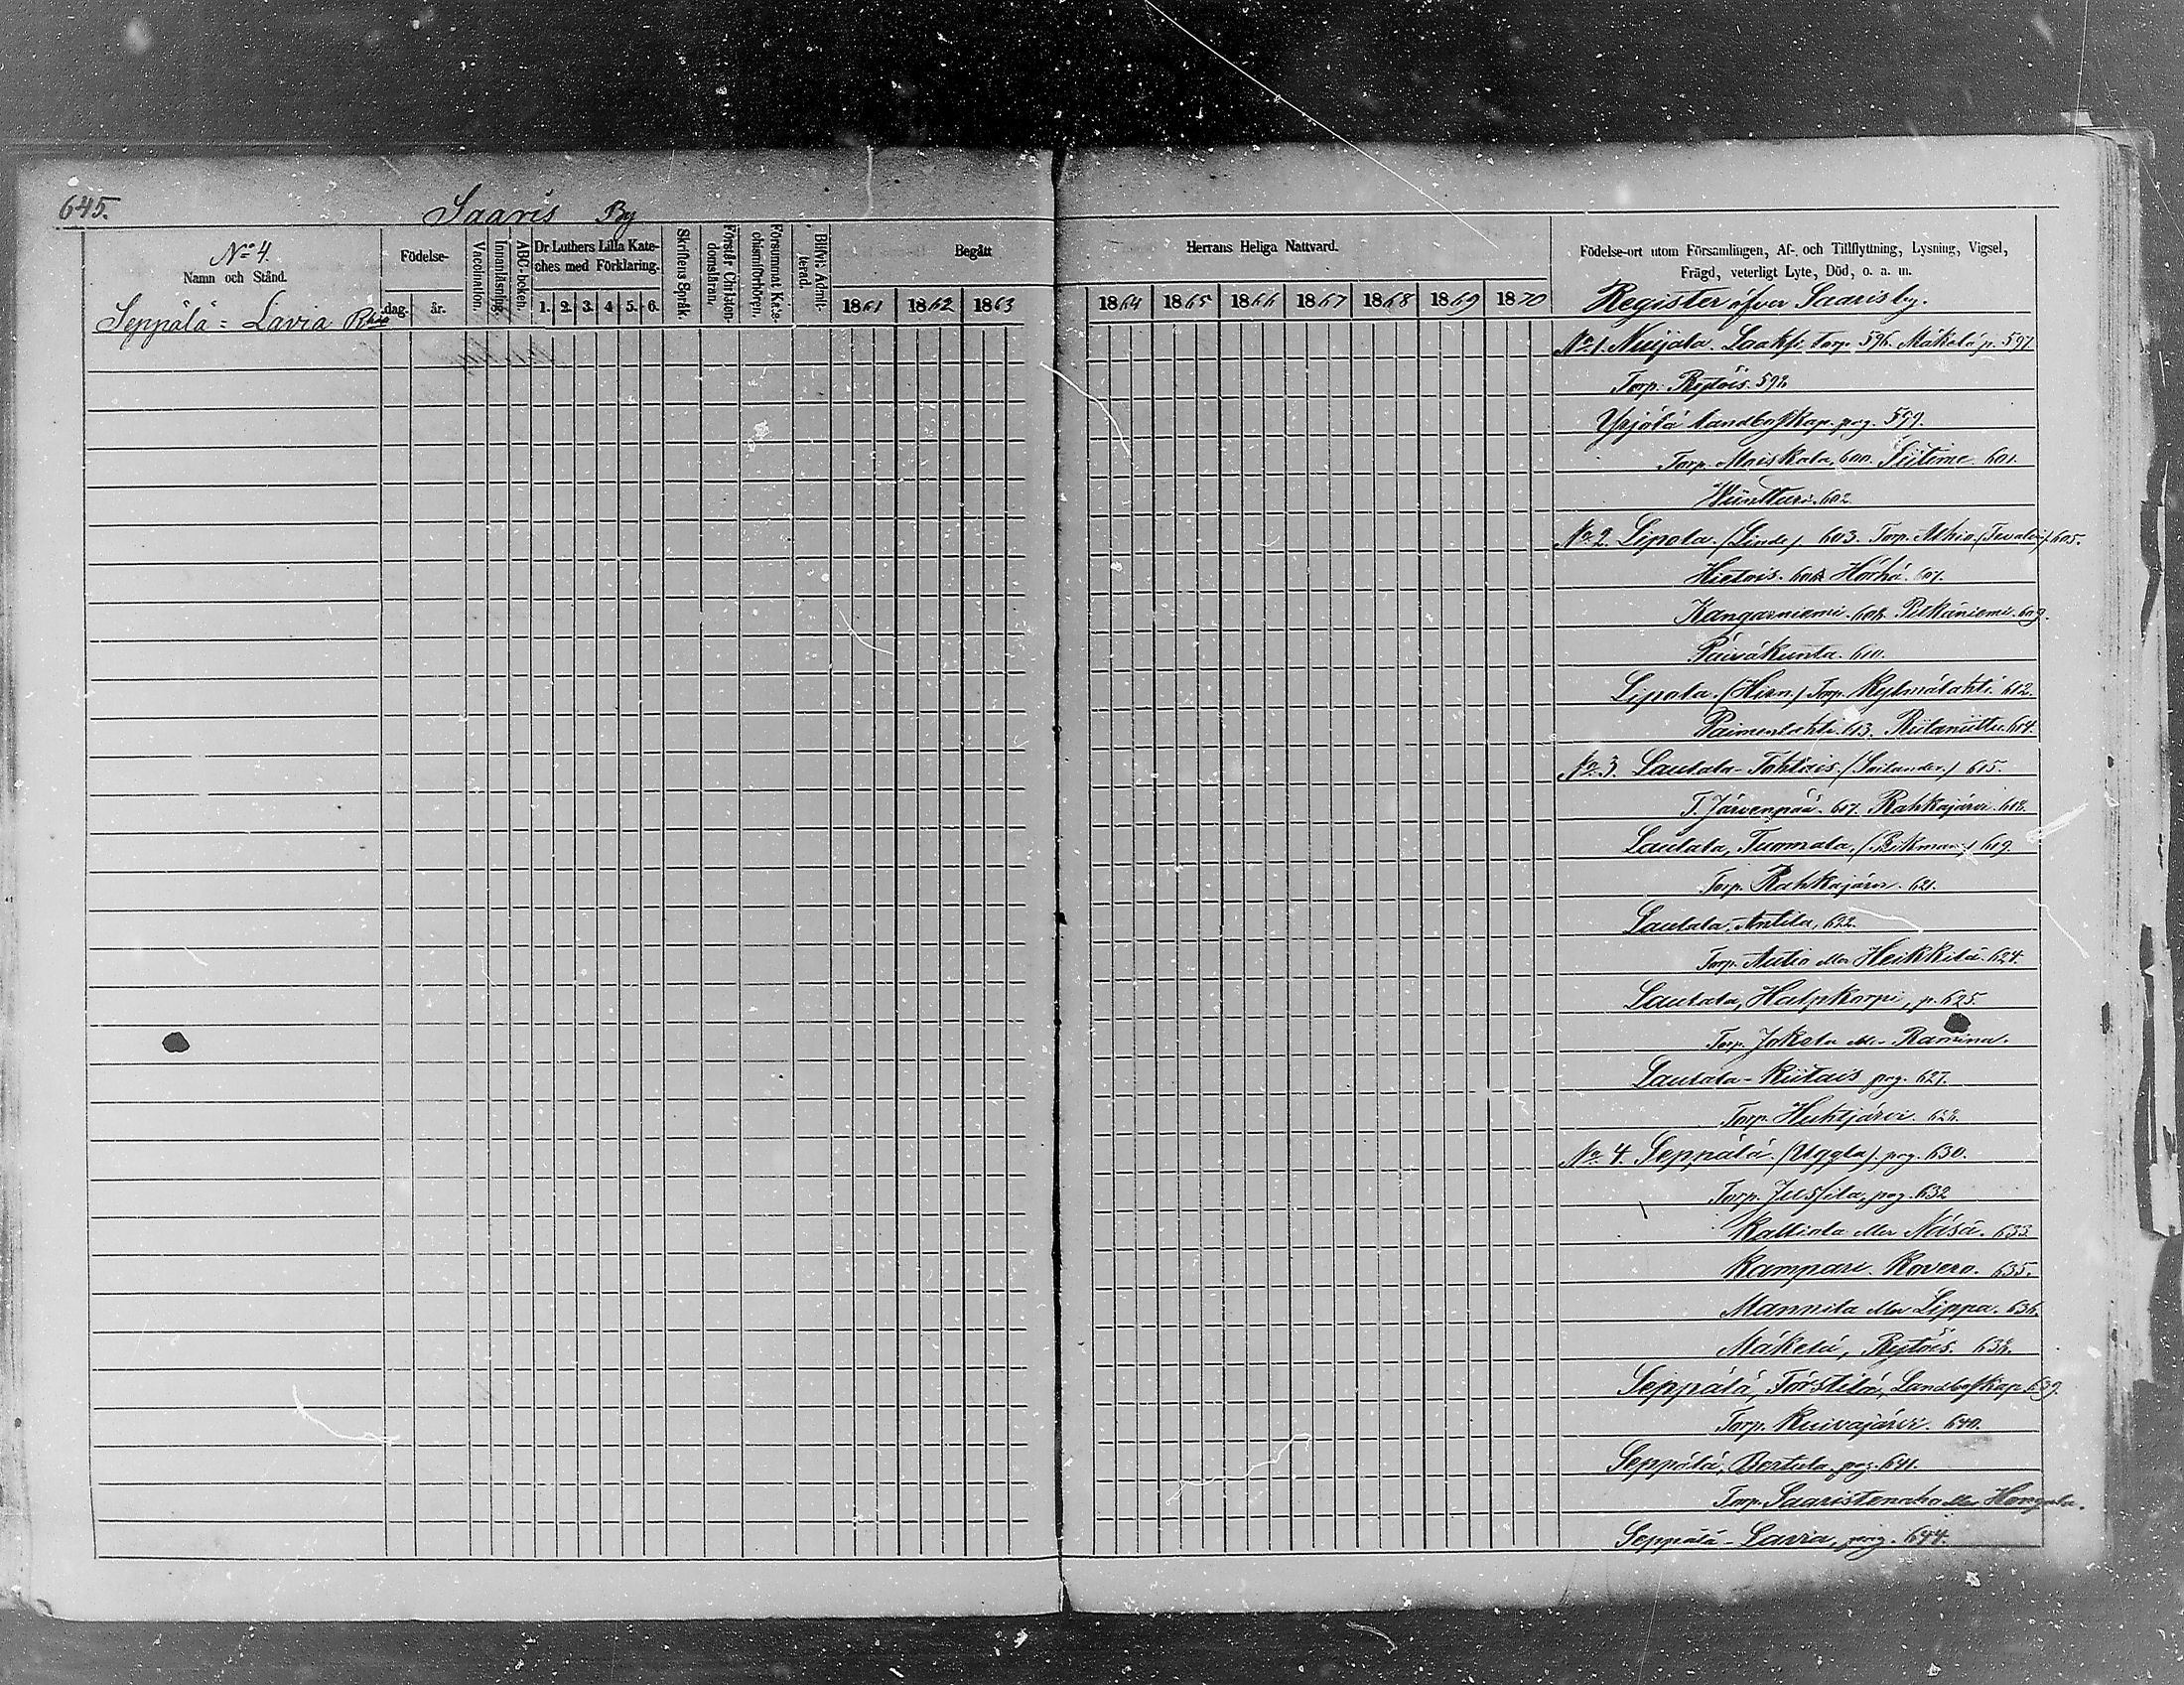 645.
Saaris By
No 4.
Namn och Stånd.
Seppälä = Lavia Rhåll
Födelse-
dag.
år.
Vaccination.
Innanläsning.
ABC-boken.
Dr Luthers Lilla Kate-
ches med Förklaring.
1. 2. 3. 4 5. 6.
Skriftens Språk.
Förstår Christen-
domsläran.
Försummat Kate-
chismiförhören.
Blifvit Admit-
terad.
Begått
1861 1862 1863
Herrans Heliga Nattvard.
1864 1865 1866 1867 1868 1869 1870
Födelse-ort utom Församlingen, Af- och Tillflyttning, Lysning, Vigsel,
Frägd, veterligt Lyte, Död, o. a. m.
Register öfver Saaris by.
No 1. Nuijala. Laaksi torp. 596. Mäkelä p. 597
Torp. Rytöis. 598
Yrjölä landbofskap. pag. 599.
Torp. Maiskala, 600. Siitime 601.
602.
No 2. Lipola. (Linde) 603. Torp. Ahio. 605.
Hietois. 606 Hörhä. 607.
Kangasniemi. 608. Pitkäniemi. 609.
Päiväkunta. 610.
Lipola. (Hirn.) Torp. Kylmälahti. 612.
Paimenlahti. 613. 614.
No 3. Lautala-Tahlais. 615.
T. Järvenpää. 617. Rahkajärvi. 618.
Lautala, Tuomala, 619.
Torp. Rahkajärvi. 621.
Lautala, Antila, 622.
Torp. Autio eller Heikkilä. 624.
Lautala, Halpkorpi, p. 625.
Torp. Jokela eller
Lautala-Riitais pag. 627.
Torp. Huhtjärvi. 628.
No 4. Seppälä. (Uggla). pag. 630.
Torp. Jussila, pag. 632
Kalliola eller Näsä. 633.
Kampari. Kovero. 635.
Mannila eller Lippa. 636.
Mäkelä, Rytöis. 638.
Seppälä, Törstilä, Landbofskap 639.
Torp. Kuivajärvi. 640.
Seppälä, Bertula, pag. 641.
Torp. Saaristenaho eller Hongala.
Seppälä-Lavia, pag. 644.